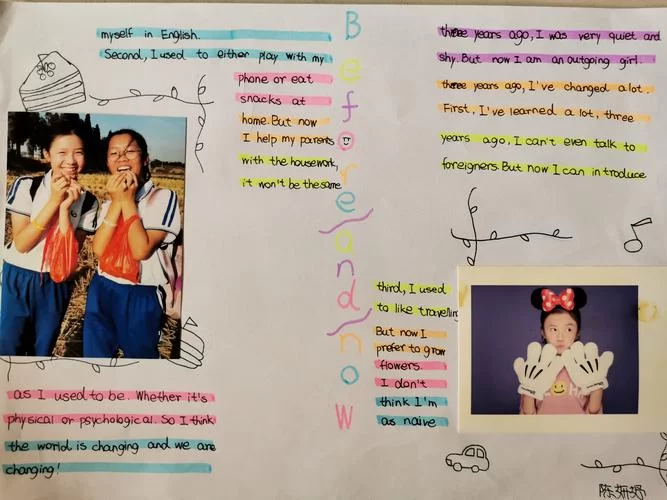 Before/and/now
three years ago, I was very quiet and
shy. But now I am an outgoing girl.
three years ago, I've changed a lot.
First, I've learned a lot, three
years ago, I can't even talk to
foreigners. But now I can introduce
myself in English.
Second, I used to either play with my
phone or eat
snacks at
home. But now
I help my parents
with the housework,
it won't be the same
third, I used
to like travelling
But now I
prefer to grow
flowers.
I don't
think I'm
as naive
as I used to be. Whether it's
physical or psychological. So I think
the world is changing and we are
changing!